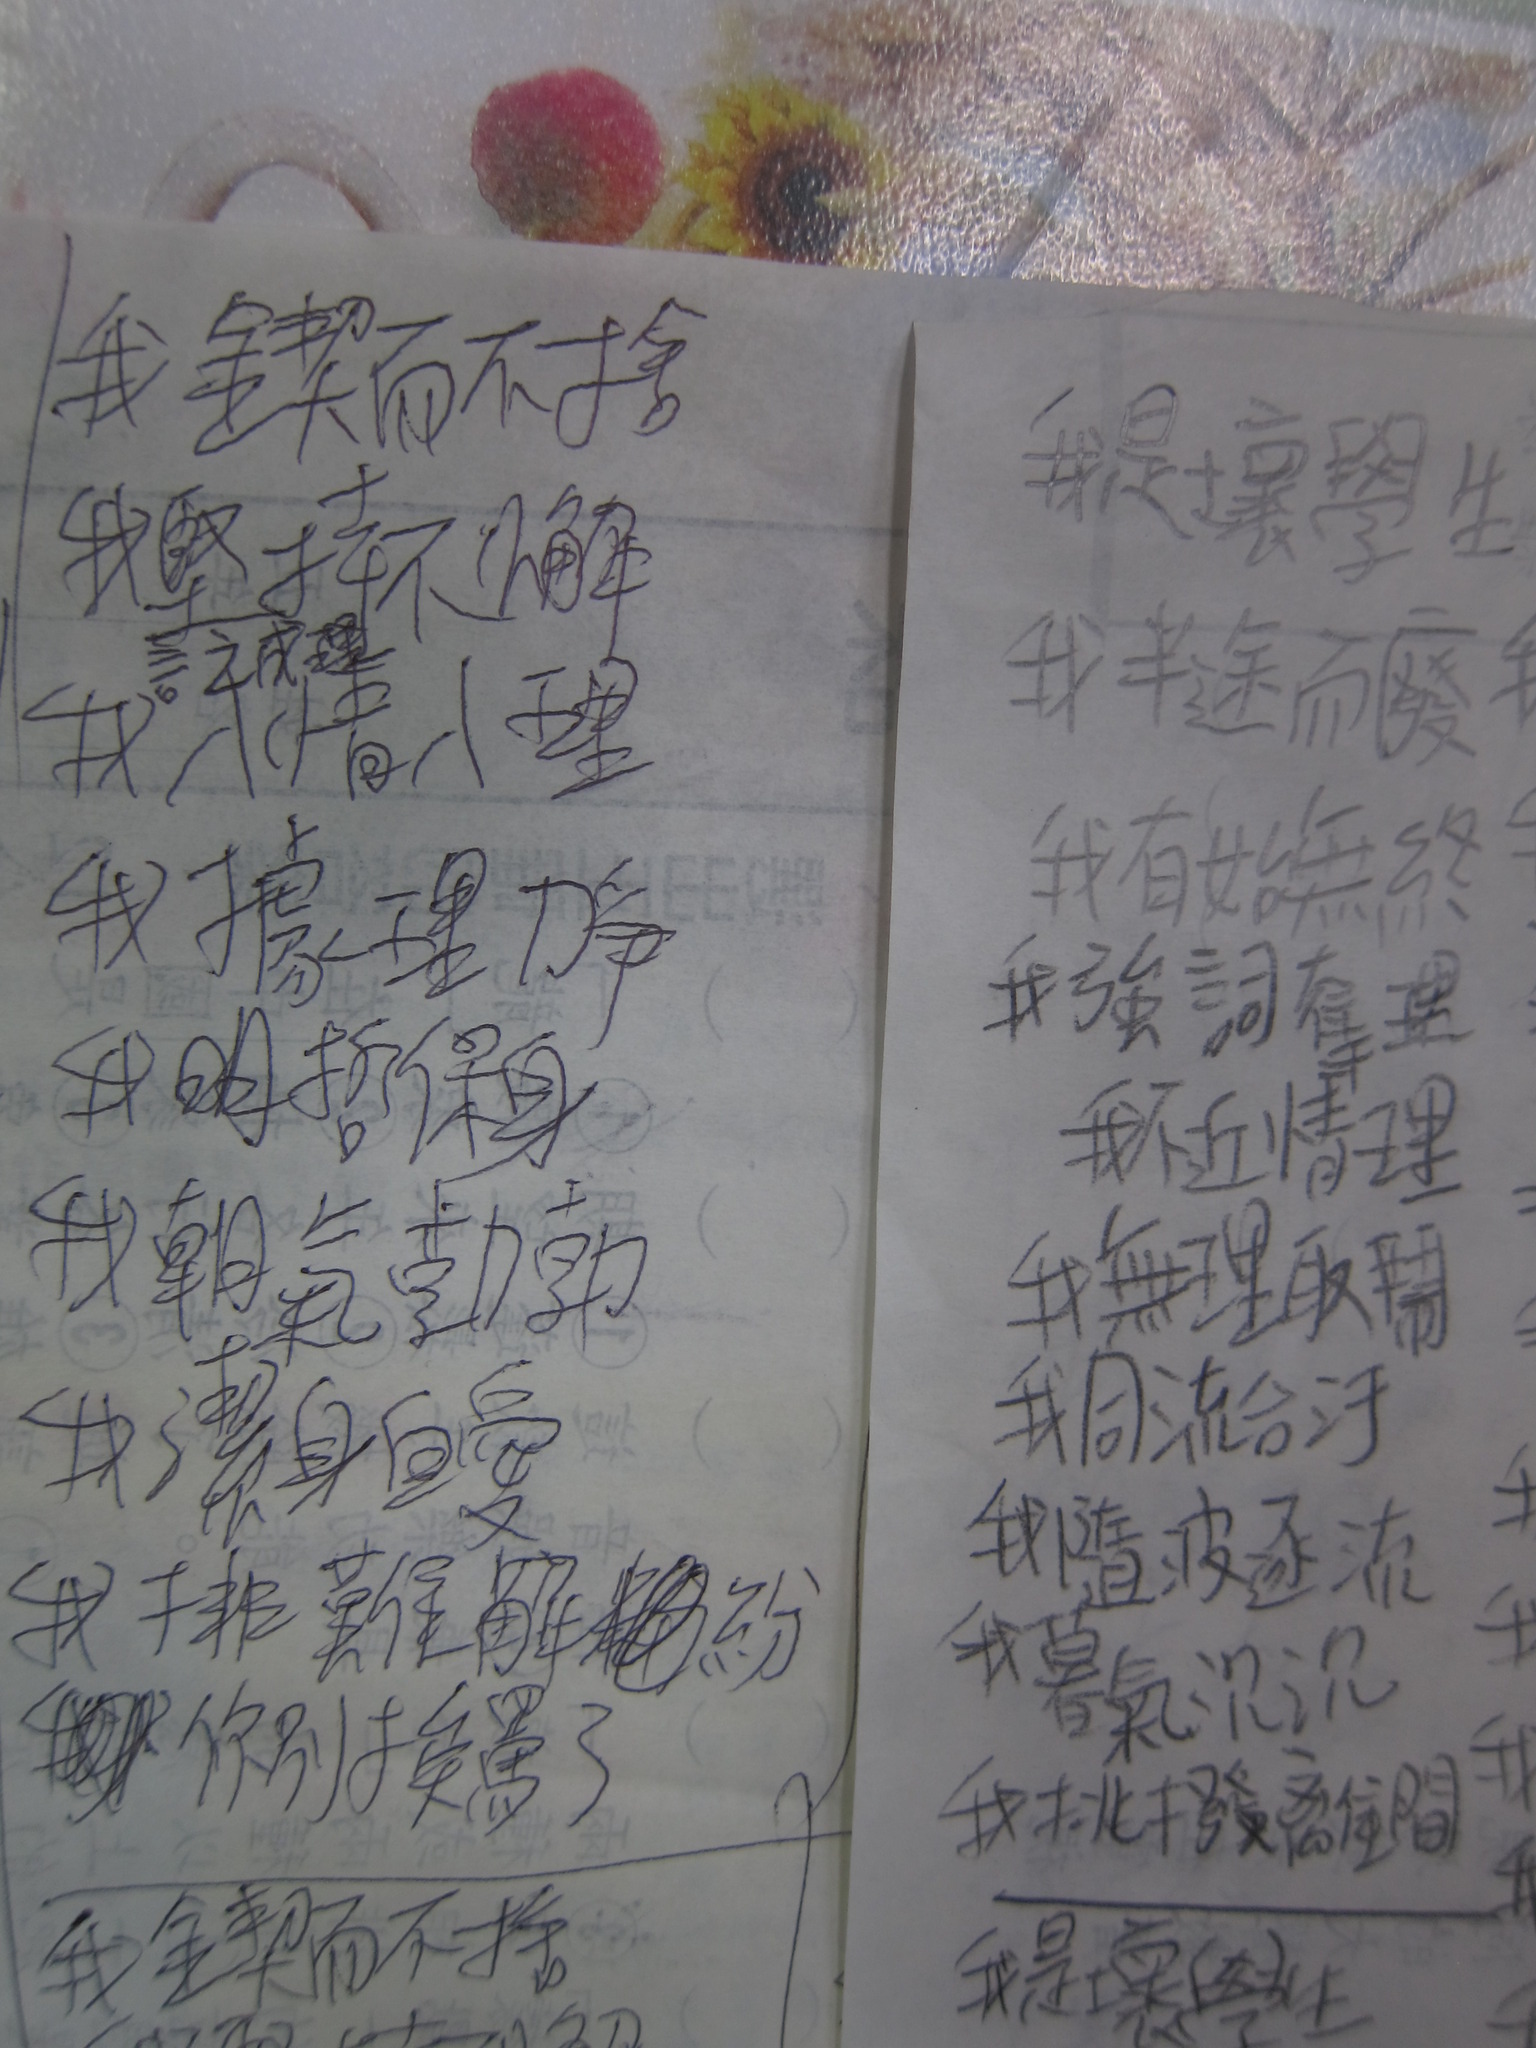 我鍥而不捨
我堅持不懈
言之成理
我入情入理
我據理力爭
我明哲保身
我朝氣勃勃
我潔身自愛
我排難解紛
你別挨罵了
我鍥而不捨
我是壞學生
我半途而廢
我有始無終
我強詞奪理
我不近情理
我無理取鬧
我同流合汙
我隨波逐流
我暮氣沉沉
我挑撥離間
我是壞學生